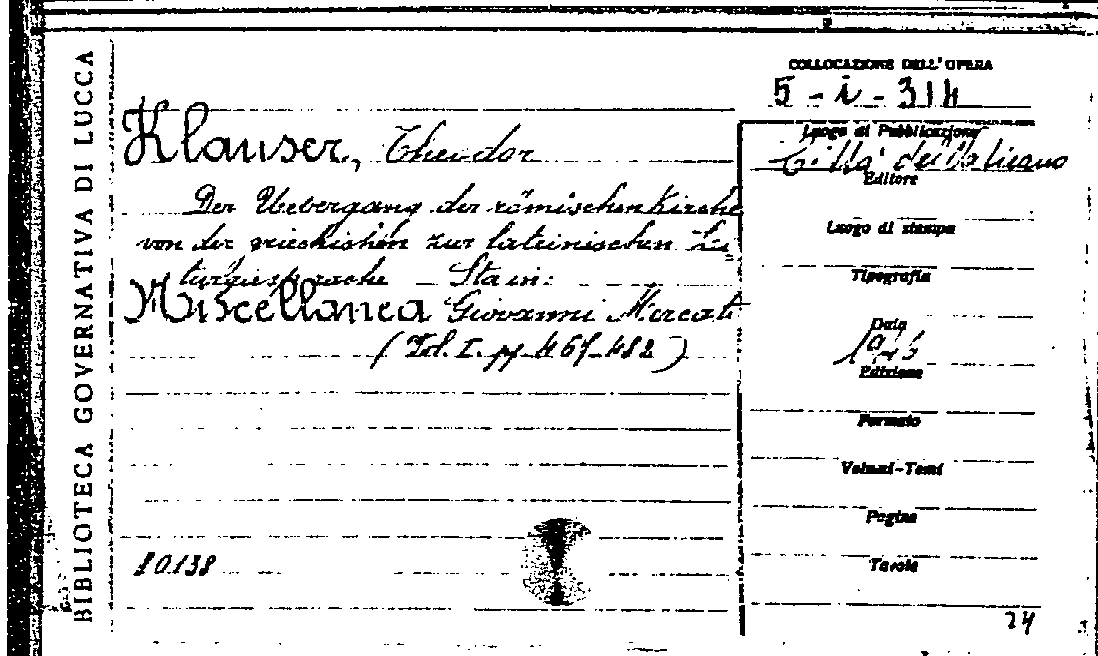 BIBLIOTECA GOVERNATIVA DI LUCCA
COLLOCAZIONE DELL'OPERA
5-i-314
Klauser, Theodor
Der Uebergang der römischen Kirche
von der griechishen zur lateinischen Li
turgiesprache Sta in:
Miscellanea Giovanni Mercati
(Vol. I. pp. 467-482)
10138
Luogo di Pubblicazione
Città del Vaticano
Editore
Luogo di stampa
Tipografia
Data
1946
Edizione
Formato
Volumi-Tomi
Pagine
Tavole
24